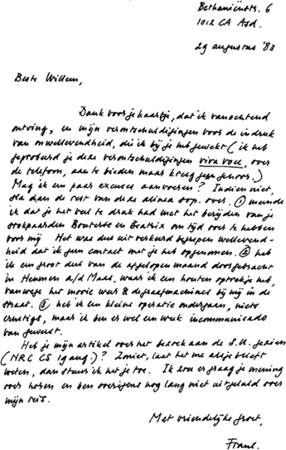 Bethaniënstr. 6
1012 CA Asd.
29 augustus '83
Beste Willem,
Dank voor je kaartje, dat ik vanochtend
ontving, en mijn verontschuldigingen voor de indruk
van onwellevendheid, die ik bij je heb gewekt (ik heb
geprobeerd je deze verontschuldigingen viva voce, over
de telefoon, aan te bieden maar kreeg geen gehoor.)
Mag ik een paar excuses aanvoeren? Indien niet,
sla dan de rest van deze alinea s.v.p. over. ① meende
ik dat je het veel te druk had met het berijden van je
stokpaarden Bouterse en Beatrix om tijd over te hebben
voor mij. Het was dus uit verkeerd begrepen wellevend-
heid dat ik geen contact met je heb opgenomen. ② heb
ik een groot deel van de afgelopen maand doorgebracht
in Heumen a/d Maas, waar ik een houten optrekje heb,
vanwege het mooie weer & de graafmachines bij mij in de
straat. ③ heb ik een kleine operatie ondergaan, niets
ernstigs, maar ik ben er wel een week incommunicado
van geweest.
Heb je mijn artikel over het bezoek aan de S.U. gezien
(NRC CS 19 aug.)? Zoniet, laat het me alsjeblieft
weten, dan stuur ik het je toe. Ik zou er graag je mening
over horen en ben overigens nog lang niet uitgeluld over
mijn reis.
Met vriendelijke groet,
Frank.